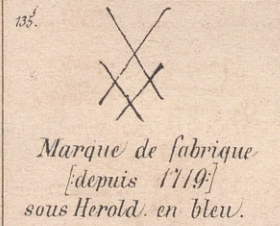 135.
Marque de fabrique
[:depuis 1719:]
sous Herold. en bleu.